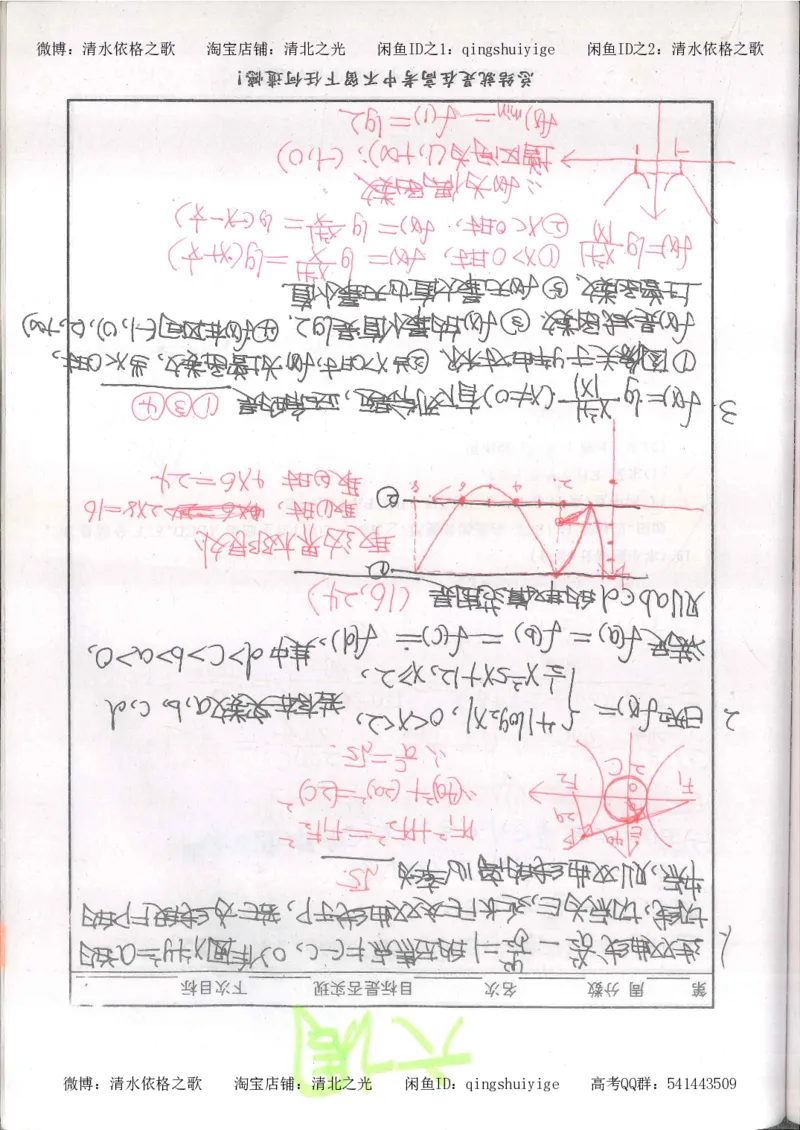 微博：清水依格之歌 淘宝店铺：清北之光 闲鱼ID之1：qingshuiyige 闲鱼ID之2：清水依格之歌
六周
第 周 分数 名次 目标是否实现 下次目标
1. 过双曲线 x²/a² - y²/b² = 1 的左焦点F(-C, 0)作圆x²+y²=a²的
切线, 切点为E, 延长FE交双曲线于P, 若E为线段FP的
中点, 则双曲线的离心率为 √5
PF₁²+PF₂²=F₁F₂²
∴(4a)²+(2a)²=(2c)²
∴ c/a=√5
2. 已知f(x)= { 4|log₂x|, 0<x<2, ½x²-5x+12, x≥2, 若存在实数a, b, c, d
满足f(a)=f(b)=f(c)=f(d), 其中d>c>b>a>0,
则abcd的取值范围是 (16,24)
取边界大胆处
取①时, 2×8=16
取②时 4×6=24
3. f(x)=lg (x²+1)/|x| (x≠0)有下列命题, 正确的是 ①③④
①图像关于y轴由对称 ②当x>0时, f(x)为增函数, 当x<0时,
f(x)是减函数 ③f(x)的最小值是lg2 ④f(x)在区间(-1,0),(1,+∞)
上增函数 ⑤f(x)无最大值也无最小值
f(x)=lg (x²+1)/|x| ①x>0时, f(x)=lg (x²+1)/x=lg(x+1/x)
②x<0时, f(x)=lg (x²+1)/-x=lg(-x-1/x)
∴f(x)为偶函数
增区间为(1,+∞), (-1,0)
f(x)min=f(1)=lg2
总结就是在高考中不留下任何遗憾！
微博：清水依格之歌 淘宝店铺：清北之光 闲鱼ID：qingshuiyige 高考QQ群：541443509